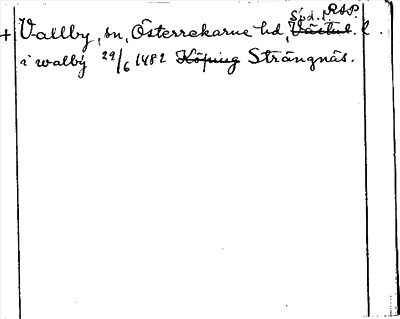 Spd. l. RAP.
+ Vallby, sn, Österrekarne hd, Västml. l.
i walby 29/6 1482 Köping Strängnäs.